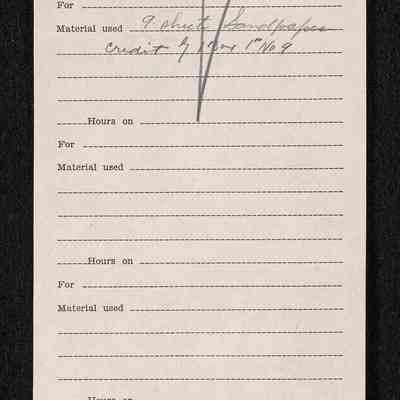 For
Material used 9 sheets Sandpaper
Credit by 1 Box 1" No 9
Hours on
For
Material used
Hours on
For
Material used
Hours on